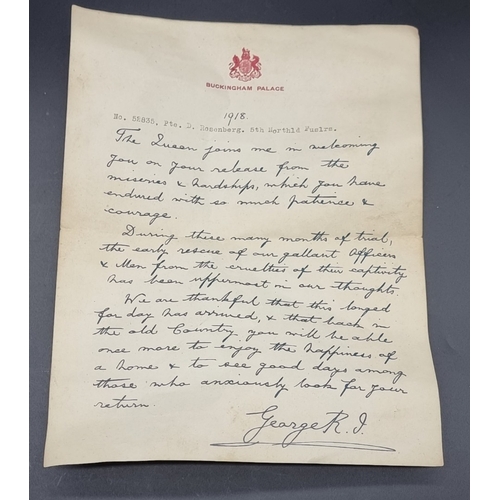 BUCKINGHAM PALACE
1918.
Pte. D. Rosenberg. 5th Northld Fuslrs.
The Queen joins me in welcoming
you on your release from the
miseries & hardships, which you have
endured with so much patience &
courage.
During these many months of trial,
the early rescue of our gallant Officers
& Men from the cruelties of their captivity
has been uppermost in our thoughts.
We are thankful that this longed
for day has arrived, & that back in
the old Country you will be able
once more to enjoy the happiness of
a home & to see good days among
those who anxiously look for your
return.
George R.I.